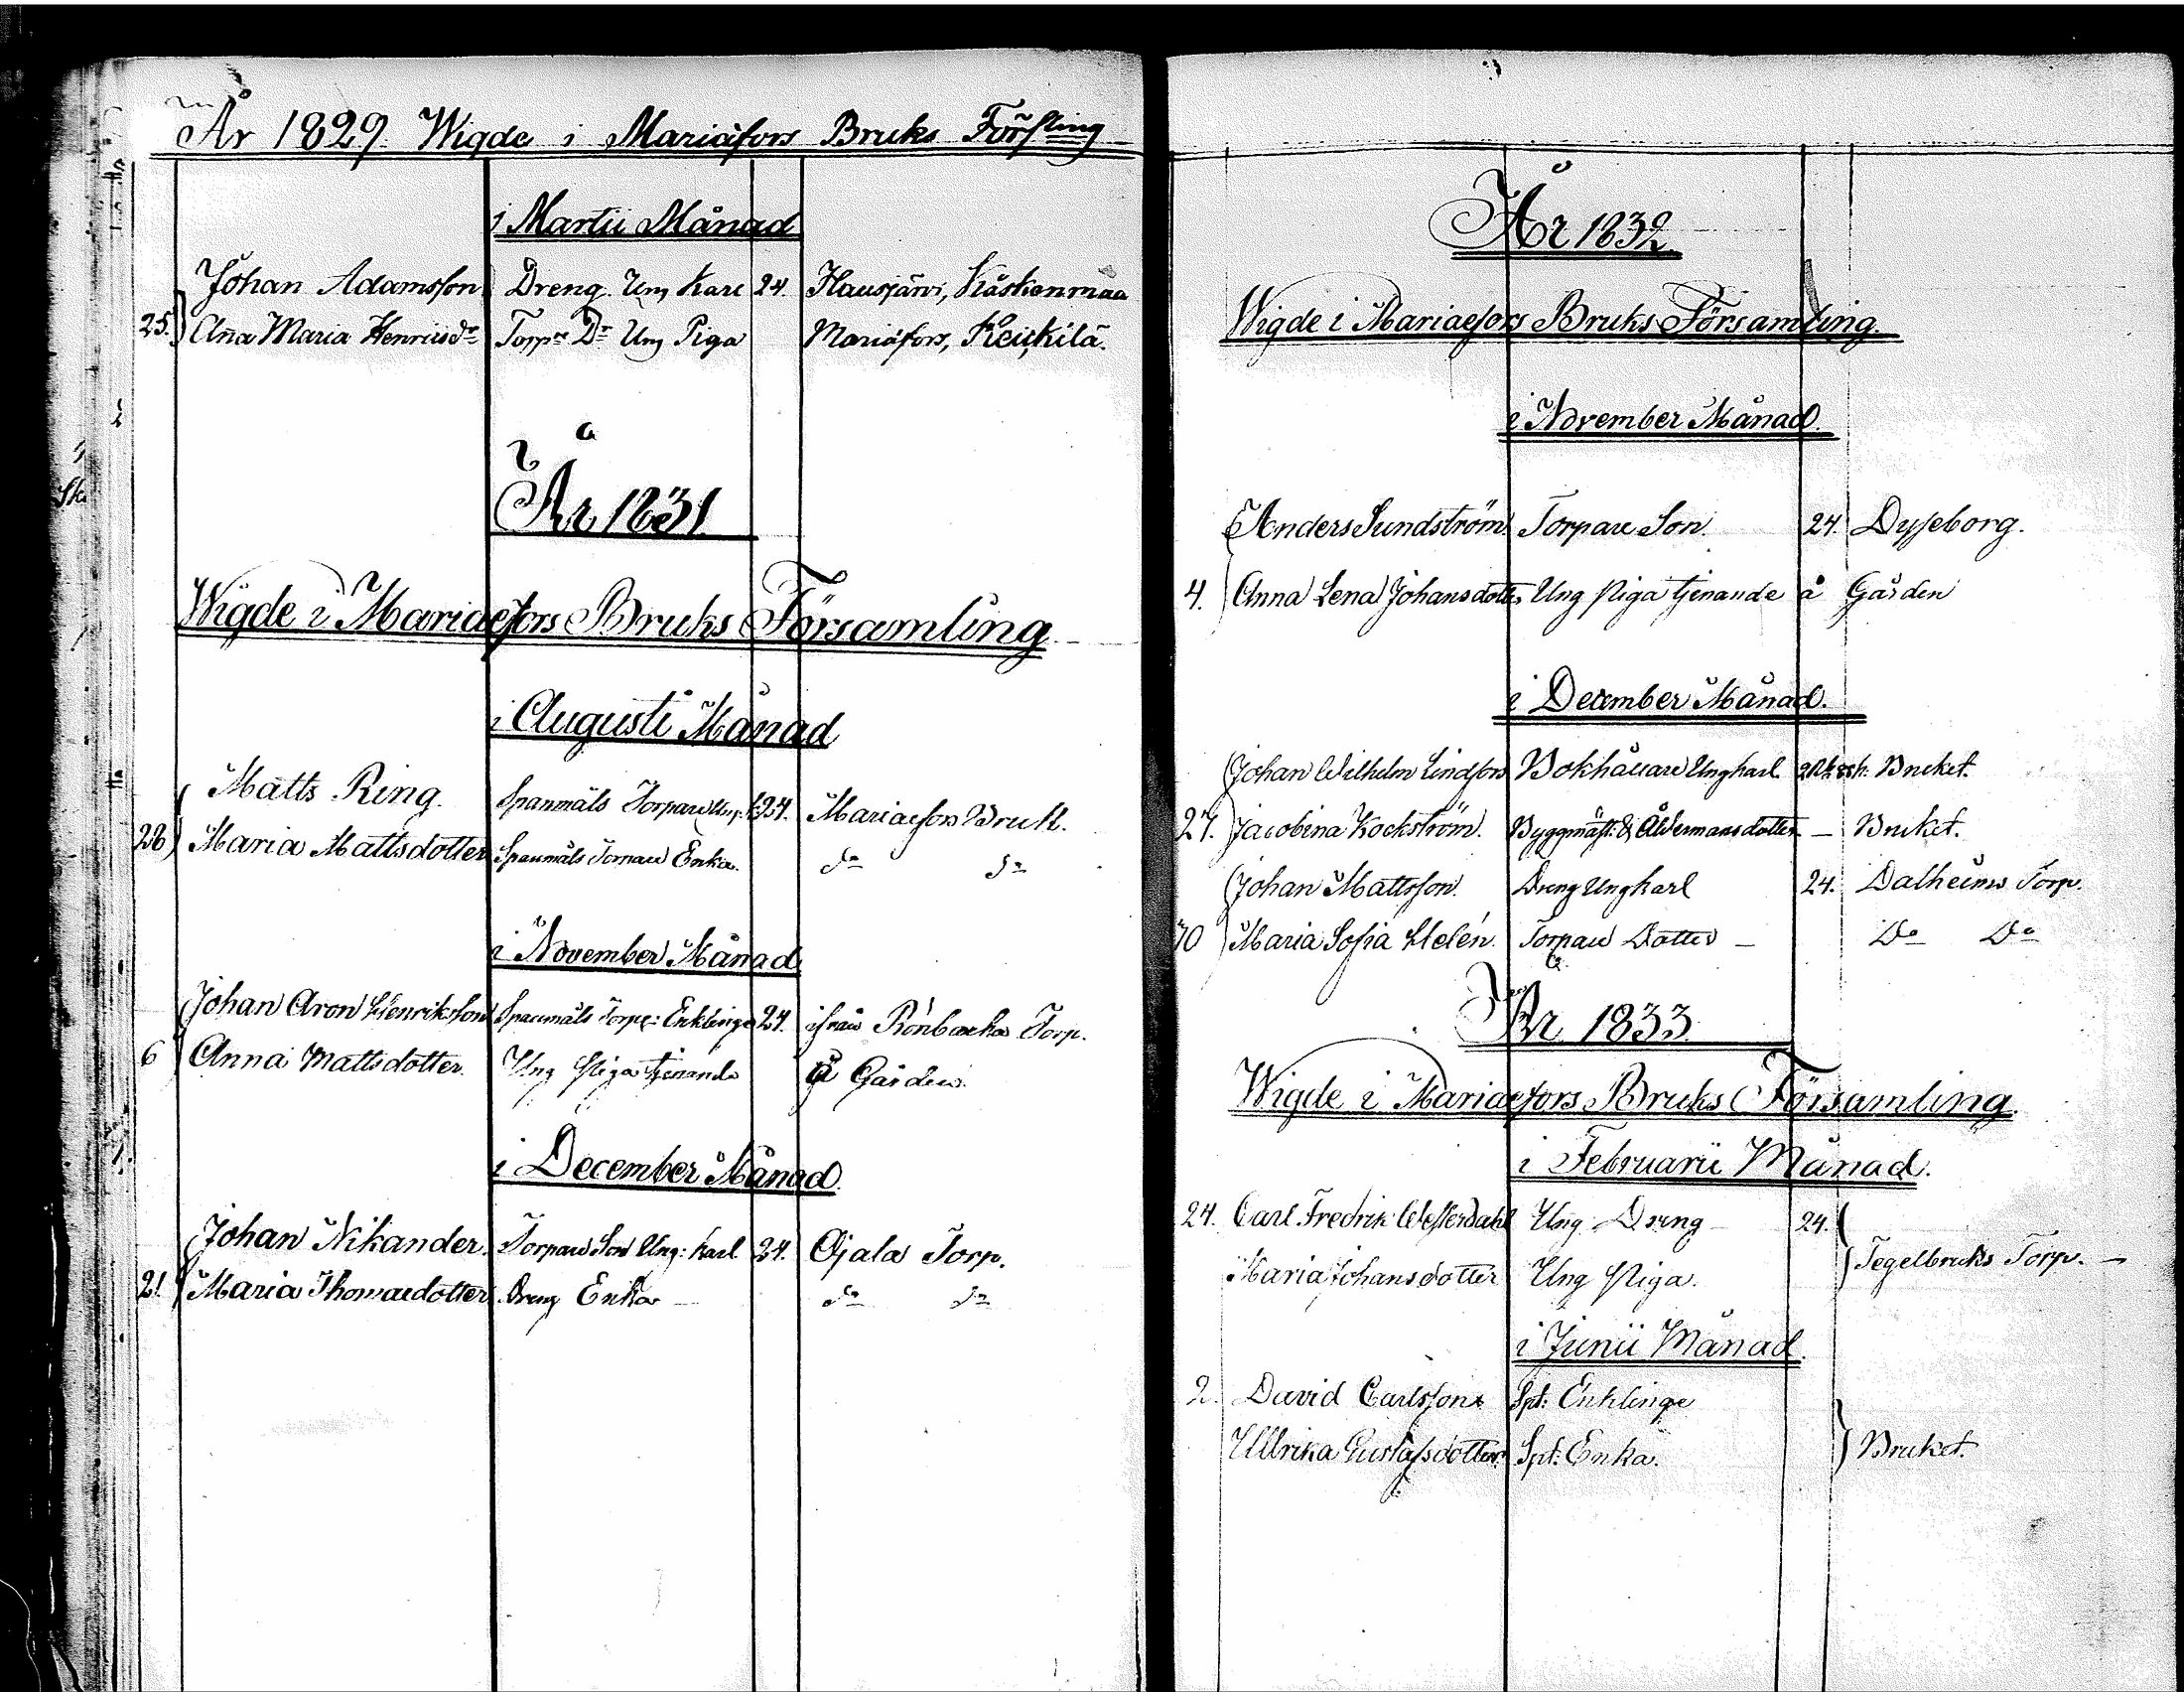 År 1829 Wigde i Mariæfors Bruks Förs̃ling
i Martii Månad
Johan Adamsson Dreng Ung Karl 24. Hausjärvi, Käskenmaa
25. Aña Maria Henricsdr Torpre Dr Ung Piga Mariæfors, Keickilä.
År 1831.
Wigde i Mariaefors Bruks Församling
i Augusti Månad
Matts Ring. Spanmåls Torpare Ung: k: 24. Mariaefors Bruk.
28 Maria Mattsdotter Spanmåls Torpare Enka. do do
i November Månad
Johan Aron Henriksson Spanmåls Torpe: Enklinge 24. ifrån Rönbacka Torp.
6 Anna Mattsdotter. Ung Piga tjenande å Gården.
i December Månad.
Johan Nikander. Torpare Son Ung: karl 24. Ojala Torp.
21 Maria Thomasdotter Dreng Enka — do do
År 1832
Wigde i Mariaefors Bruks Församling.
i November Månad.
Anders Sundström Torpare Son. 24. Dysseborg.
4. Anna Lena Johansdotter Ung Piga tjenande å Gården
i December Månad.
Johan Wilhelm Lindfors Bokhållare Ungkarl. Bruket.
27. Jacobina Kockström. Byggmäst: & Åldermans dotter — Bruket.
Johan Mattsson. Dreng Ungkarl 24. Dalheims Torp.
Maria Sofia Helén. Torpare Dotter — Do Do
År 1833
Wigde i Mariaefors Bruks Församling.
i Februarii Månad.
24. Carl Fredrik Westerdahl Ung Dreng 24.
Tegelbruks Torp. —
Maria Johansdotter Ung Piga.
i Junii Månad.
2. David Carlsson Spt: Enklinge
Ullrika Gustafsdotter Spt: Enka. Bruket.